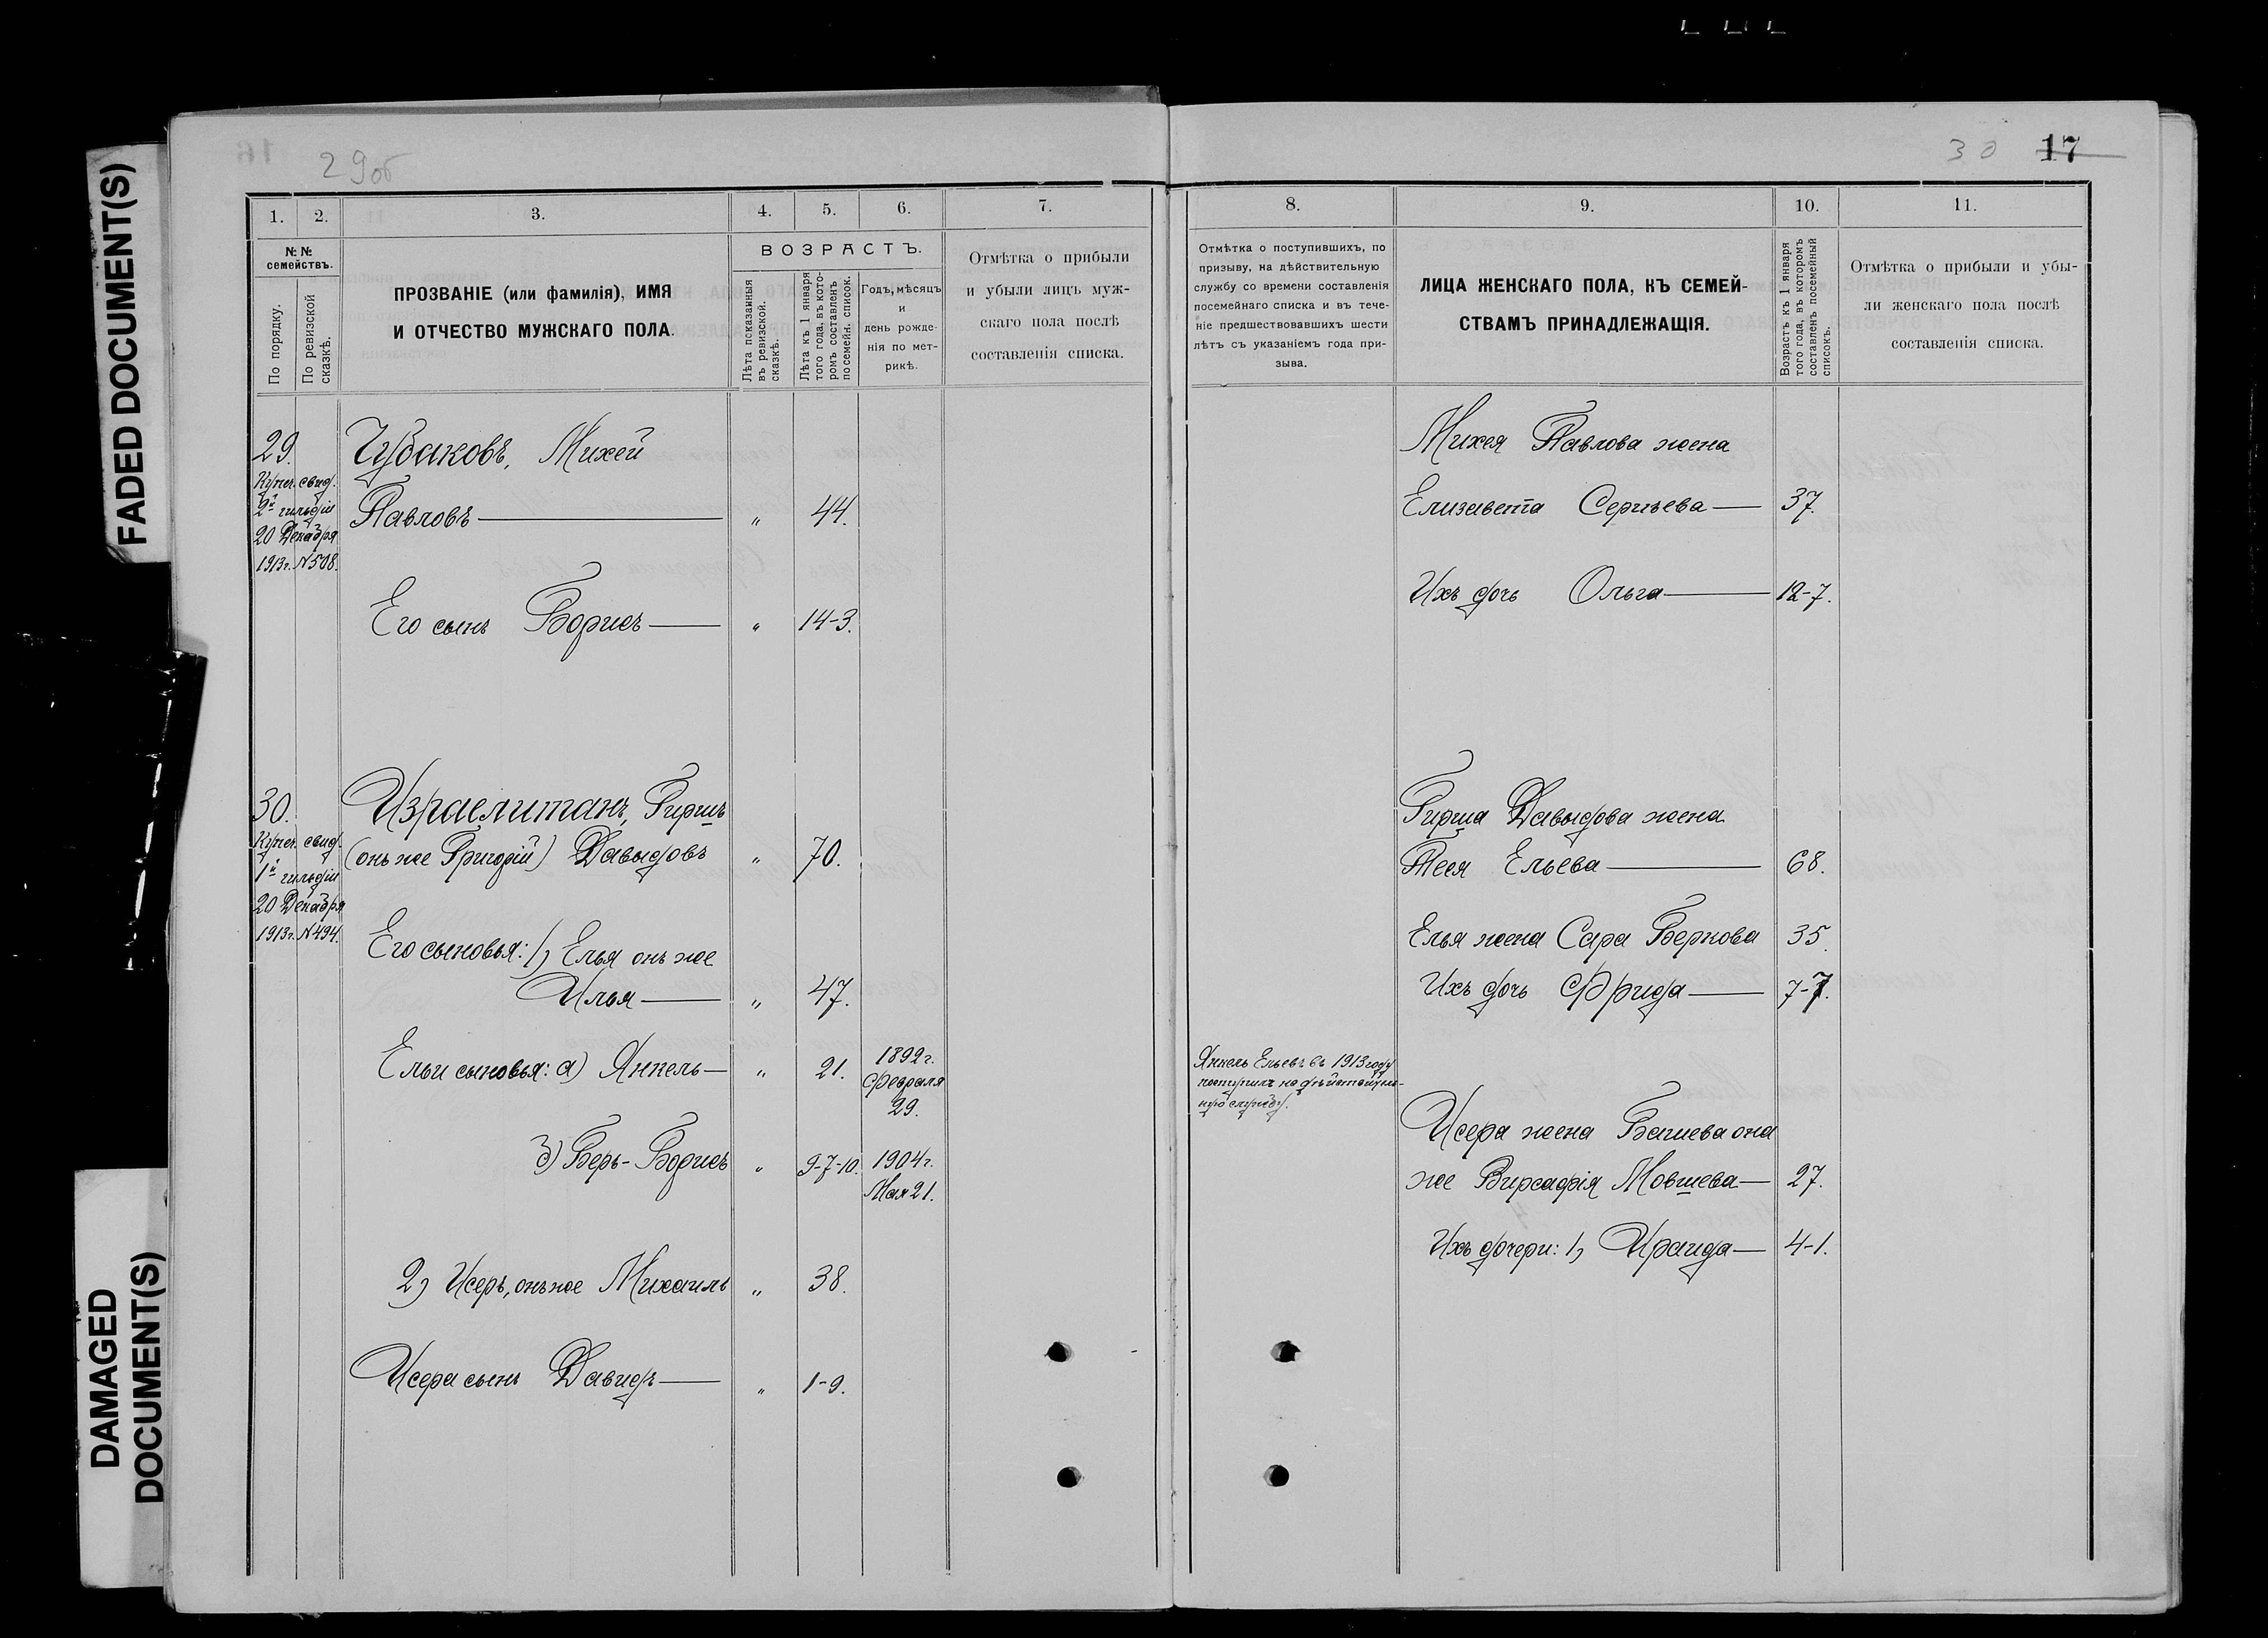 FADED DOCUMENT(S)
DAMAGED
DOCUMENT(S)
29об
1. 2. 3. 4. 5. 6. 7.
№ №
семействъ.
По порядку.
По ревизской
сказкѣ.
ПРОЗВАНІЕ (или фамилія), ИМЯ
И ОТЧЕСТВО МУЖСКАГО ПОЛА.
ВОЗРАСТЪ.
Лѣта показанныя
въ ревизской.
сказкѣ.
Лѣта къ 1 января
того года, въ кото-
ромъ составленъ
посемейн. список.
Годъ, мѣсяцъ
и
день рожде-
нія по мет-
рикѣ.
Отмѣтка о прибыли
и убыли лицъ муж-
скаго пола послѣ
составленія списка.
29.
Купеч. свид.
2й гильдіи
20 Декабря
1913г. №508.
Чубаковъ, Михей
Павловъ — „ 44.
Его сынъ Борисъ — „ 14-3.
30.
Купеч. свид.
1й гильдіи
20 Декабря
1913г. №494.
Израелитанъ, Гиршъ
(онъ же Григорій) Давыдовъ „ 70.
Его сыновья: 1) Елья онъ же
Илья — „ 47.
Ельи сыновья: а) Янкель — „ 21. 1892г.
Февраля
29.
б) Беръ-Борисъ „ 9-7-10. 1904г.
Мая 21.
2) Исеръ, онъ же Михаилъ „ 38.
Исера сынъ Давидъ — „ 1-9.
30 17
8. 9. 10. 11.
Отмѣтка о поступившихъ, по
призыву, на дѣйствительную
службу со времени составленія
посемейнаго списка и въ тече-
ніе предшествовавшихъ шести
лѣтъ съ указаніемъ года при-
зыва.
ЛИЦА ЖЕНСКАГО ПОЛА, КЪ СЕМЕЙ-
СТВАМЪ ПРИНАДЛЕЖАЩІЯ.
Возрастъ къ 1 января
того года, въ которомъ
составленъ посемейный
списокъ.
Отмѣтка о прибыли и убы-
ли женскаго пола послѣ
составленія списка.
Михея Павлова жена
Елизавета Сергѣева — 37.
Ихъ дочь Ольга — 12-7.
Гирша Давыдова жена
Песя Ельева — 68.
Елья жена Сара Беркова 35.
Ихъ дочь Фрида — 7-7.
Янкель Ельевъ въ 1913 году
поступилъ на дѣйствитель-
ную службу.
Исера жена Башева она
же Вирсафія Мовшева — 27.
Ихъ дочери: 1) Ираида — 4-1.